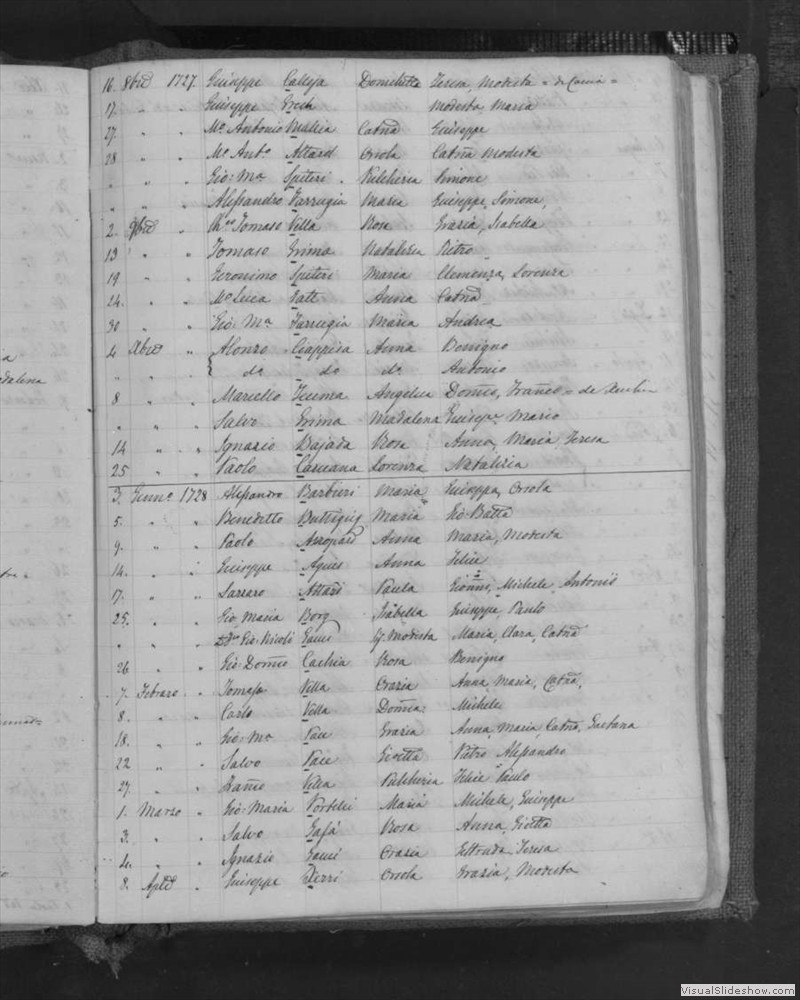 16. 8bre 1727 Giuseppe Calleja Domenica Teresa, Modesta
17. " " Giuseppe Grech Modesta Maria
27. " " Mo. Antonio Mallia Catna Giuseppe
28 " " Mo. Anto. Attard Orsola Catna Modesta
" " " Gio: Ma Spiteri Pulcheria Simone
" " " Alessandro Farrugia Maria Giuseppe, Simone,
2. 9bre " Tomaso Villa Rosa Grazia, Isabella
13 " " Tomaso Grima Natalizia Pietro
19 " " Geronimo Spiteri Maria Clemenza, Lorenza
24. " " Mo Luca Anna Catna
30 " " Gio: Ma Farrugia Maria Andrea
4 Xbre " Alonzo Ciappisa Anna Benigno
" " " do do do Antonio
8 " " Marcello Angelica Domco, Franco
" " " Salvo Grima Madalena Giusepe Mario
14 " " Ignazio Bajada Rosa Anna, Maria, Teresa
25 " " Paolo Caruana Lorenza Natalizia
3. Genno 1728 Alessandro Barbieri Maria Giuseppa, Orsola
5. " " Benedetto Buttigieg Maria Gio: Batta
9. " " Paolo Azzopard Anna Maria, Modesta
14. " " Giuseppe Agius Anna Felice
17. " " Lazzaro Attard Paula Gioanni, Michele, Antonio
25. " " Gio Maria Borg Isabella Giuseppe, Paulo
" " " Gio: Nicolo Modesta Maria, Clara, Catna
26 " " Gio: Domco Cachia Rosa Benigno
7. Febraro " Tomaso Villa Grazia Anna Maria, Catna,
8. " " Carlo Villa Domca Michele
18. " " Gio: Ma Pace Grazia Anna Maria, Catna, Gaetana
22 " " Salvo Pace Gioetta Pietro Alessandro
27. " " Villa Pulcheria Felice Paulo
1. Marzo " Gio: Maria Portelli Maria Michele, Giuseppe
3. " " Salvo Gafà Rosa Anna, Gioetta
4. " " Ignazio Grazia Geltruda, Teresa
8. Aple " Giuseppe Orsola Grazia, Modesta
VisualSlideshow.com